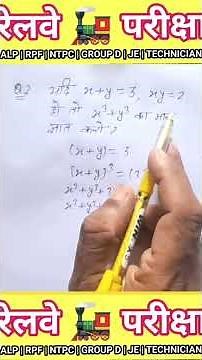 रेलवे परीक्षा
ALP | RPF | NTPC | GROUP D | JE | TECHNICIAN
Q.2 यदि x+y = 3, xy=2
हो तो x³+y³ का मान
ज्ञात करो ?
(x+y) = 3
(x+y)³ = (3
x³+y³+
x³+y³+
रेलवे परीक्षा
ALP | RPF | NTPC | GROUP D | JE | TECHNICIAN